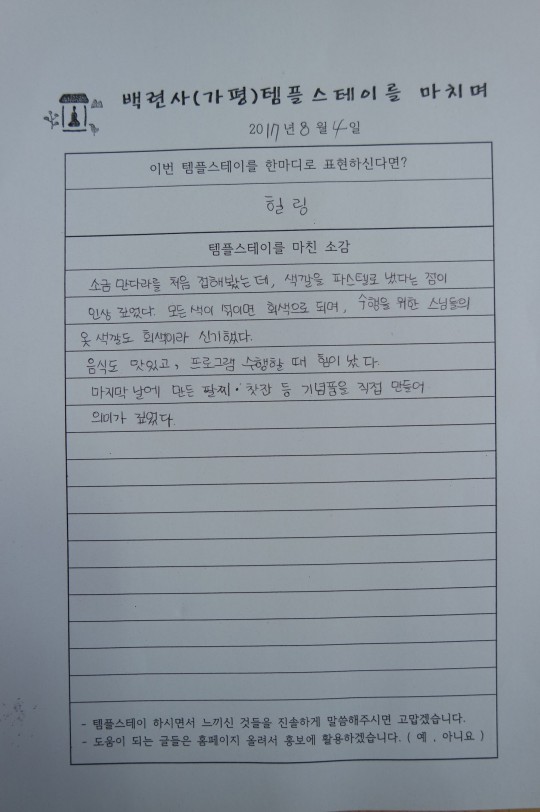 백련사(가평)템플스테이를 마치며
2017년 8월 4일
이번 템플스테이를 한마디로 표현하신다면?
힐링
템플스테이를 마친 소감
소금 만다라를 처음 접해봤는데, 색깔을 파스텔로 냈다는 점이
인상 깊었다. 모든 색이 섞이면 회색으로 되며, 수행을 위한 스님들의
옷 색깔도 회색이라 신기했다.
음식도 맛있고, 프로그램 수행할 때 힘이 났다.
마지막 날에 만든 팔찌·찻잔 등 기념품을 직접 만들어
의미가 깊었다.
- 템플스테이 하시면서 느끼신 것들을 진솔하게 말씀해주시면 고맙겠습니다.
- 도움이 되는 글들은 홈페이지 올려서 홍보에 활용하겠습니다. ( 예 , 아니요 )